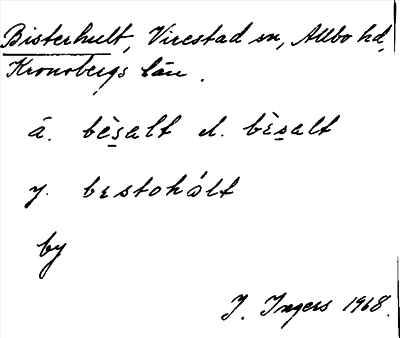 Bisterhult, Virestad sn, Allbo hd,
Kronobergs län.
ä. bὲs̲alt el. bὲs̲alt
y. bεstohólt
by
I. Ingers 1968.